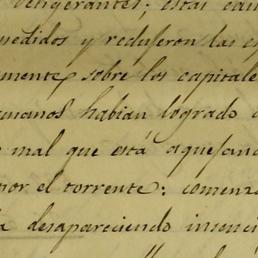 estas cau
medidos y redujeron las es
mente sobre los capitale
manos habian logrado
mal que está aquejan
por el torrente: comenz
desapareciendo insenci